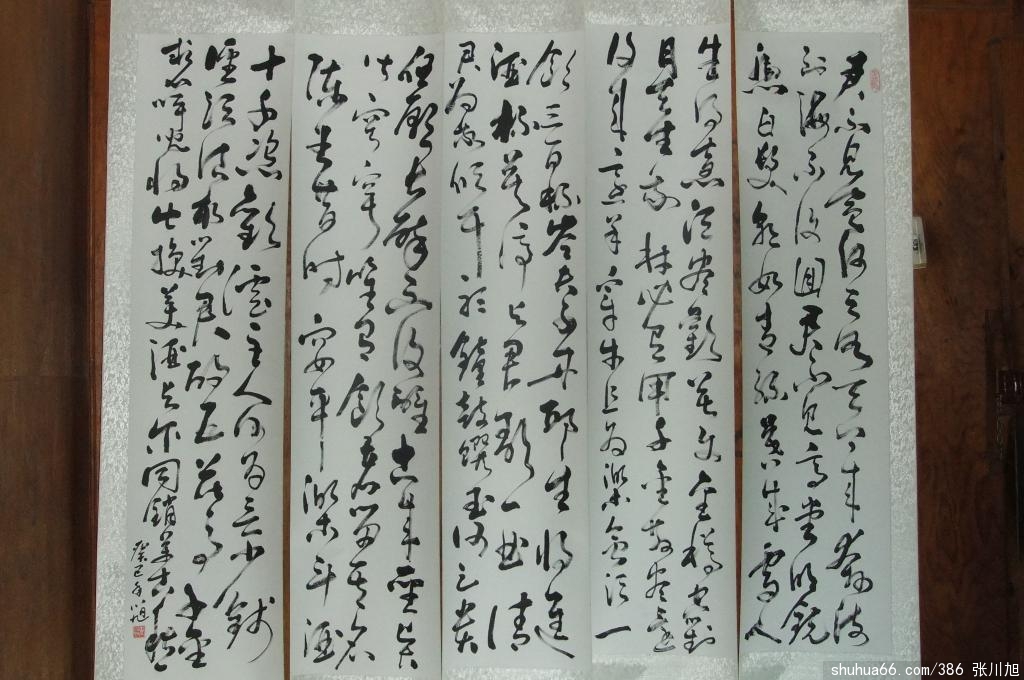 君不見黃河之水天上来奔流
到海不復回君不見高堂明鏡
悲白髮朝如青絲暮成雪人
生得意須盡歡莫使金樽空對
月天生我材必有用千金散盡還
復来烹羊宰牛且为樂會須一
飲三百杯岑夫子丹邱生将進
酒杯莫停与君歌一曲請
君为我傾耳聽鐘鼓饌玉何足貴
但願长醉不復醒古来聖賢
皆寂寞唯有飲者留其名
陳王昔时宴平樂斗酒
十千恣歡謔主人何为言少錢
徑須沽取對君酌五花馬千金
裘呼兒将出换美酒与尔同銷萬古愁
癸巳川旭
shuhua66.com/386 张川旭